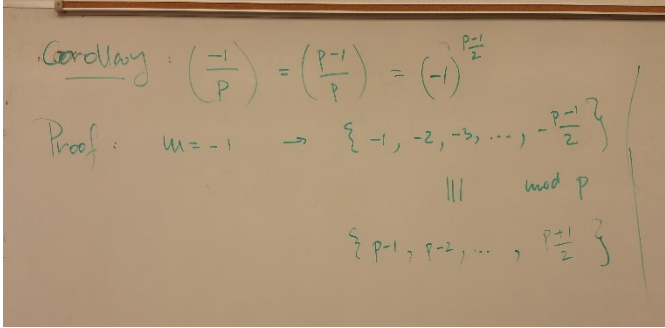 Corollary : (-1/p) = (p-1/p) = (-1)^(p-1/2)
Proof : m = -1 → { -1, -2, -3, ..., -p-1/2 }
||| mod p
{ p-1, p-2, ... , p+1/2 }